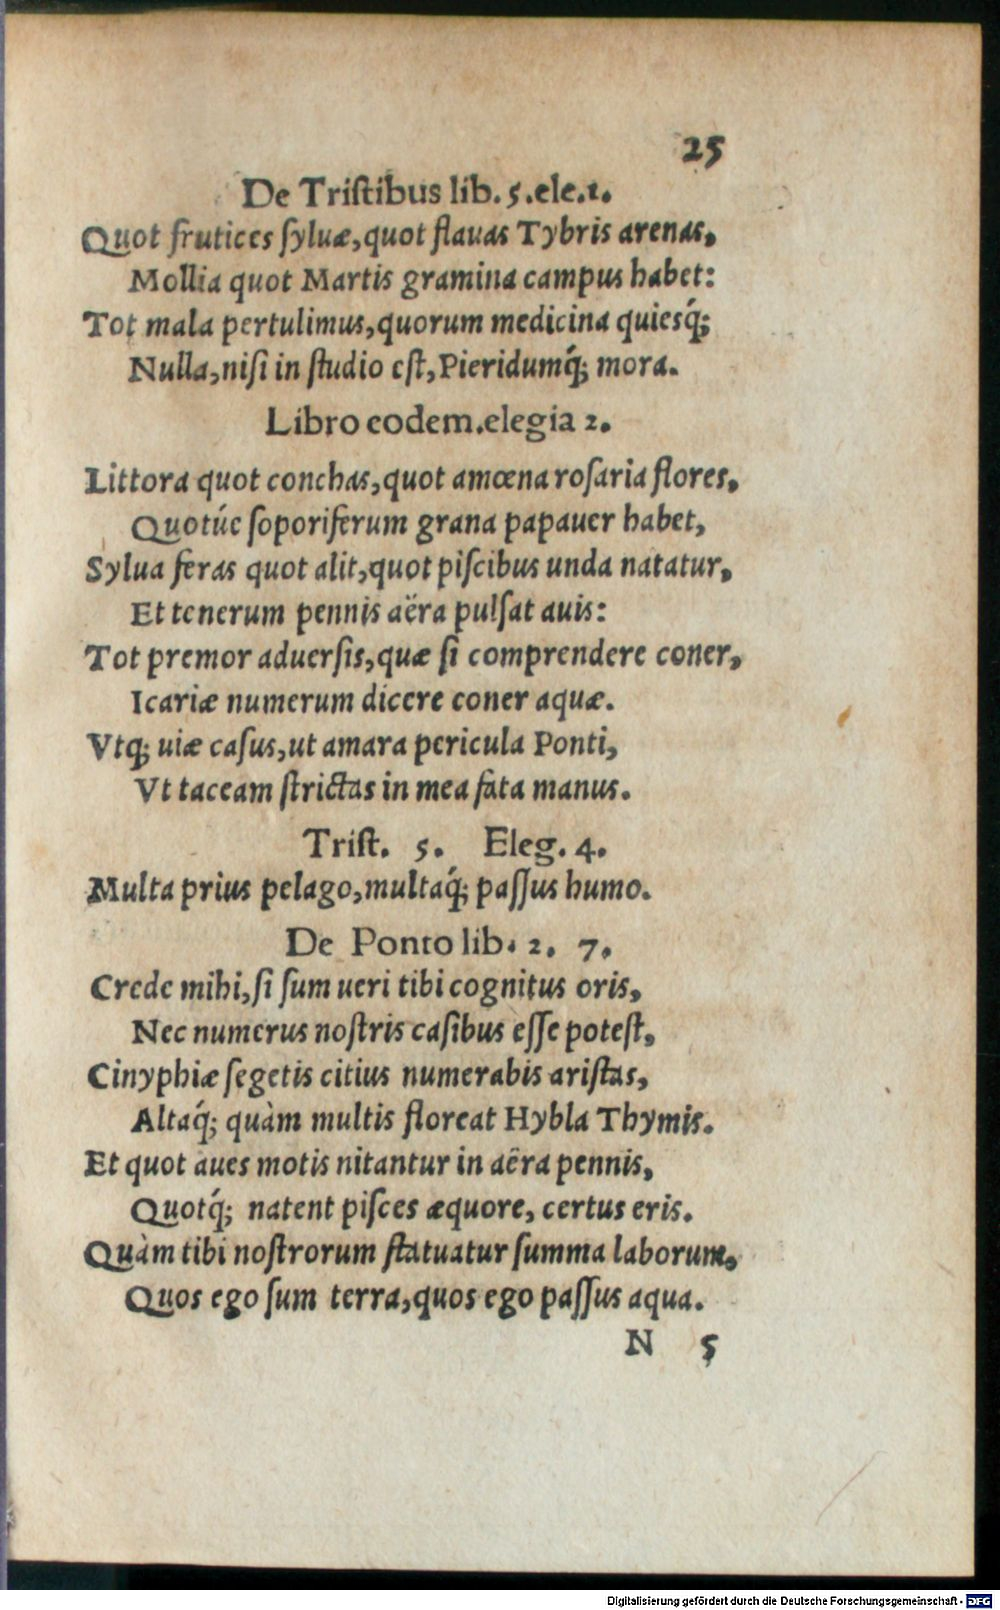 25
De Tristibus lib. 5. ele. 1.
Quot frutices syluæ, quot flauas Tybris arenas,
Mollia quot Martis gramina campus habet:
Tot mala pertulimus, quorum medicina quiesq́;
Nulla, nisi in studio est, Pieridumq́; mora.
Libro eodem. elegia 2.
Littora quot conchas, quot amœna rosaria flores,
Quotúe soporiferum grana papauer habet,
Sylua feras quot alit, quot piscibus unda natatur,
Et tenerum pennis aëra pulsat auis:
Tot premor aduersis, quæ si comprendere coner,
Icariæ numerum dicere coner aquæ.
Vtq; uiæ casus, ut amara pericula Ponti,
Vt taceam strictas in mea fata manus.
Trist. 5. Eleg. 4.
Multa prius pelago, multaq́; passus humo.
De Ponto lib. 2. 7.
Crede mihi, si sum ueri tibi cognitus oris,
Nec numerus nostris casibus esse potest,
Cinyphiæ segetis citius numerabis aristas,
Altaq́; quàm multis floreat Hybla Thymis.
Et quot aues motis nitantur in aëra pennis,
Quotq́; natent pisces æquore, certus eris.
Quàm tibi nostrorum statuatur summa laborum,
Quos ego sum terra, quos ego passus aqua.
N 5
Digitalisierung gefördert durch die Deutsche Forschungsgemeinschaft - DFG